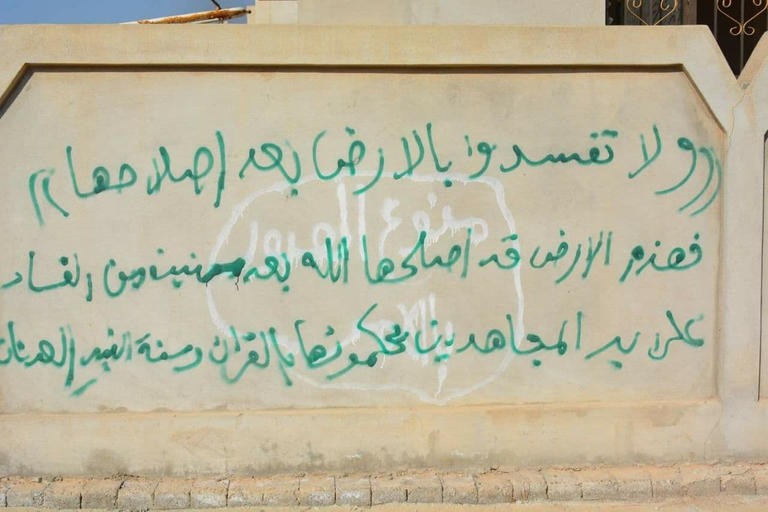 ((ولا تفسدوا بالارض بعد إصلاحها))
فهذه الارض قد اصلحها الله بعد سنين من الفساد
على يد المجاهدين يحكمونها بالقرآن وسنة النبي
ممنوع